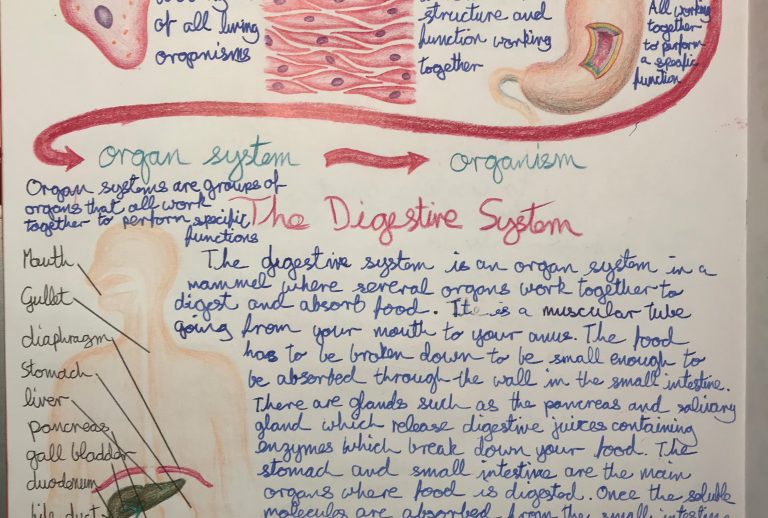 of all living
organisms
structure and
function working
together
All working
together
to perform
a specific
function
organ system
organism
Organ systems are groups of
organs that all work
together to perform specific
functions
The Digestive System
Mouth
Gullet
diaphragm
stomach
liver
pancreas
gall bladder
duodenum
bile duct
The digestive system is an organ system in a
mammel where several organs work together to
digest and absorb food. It is a muscular tube
going from your mouth to your anus. The food
has to be broken down to be small enough to
be absorbed through the wall in the small intestine.
There are glands such as the pancreas and salivary
gland which release digestive juices containing
enzymes which break down your food. The
stomach and small intestine are the main
organs where food is digested. Once the soluble
molecules are absorbed from the small intestine